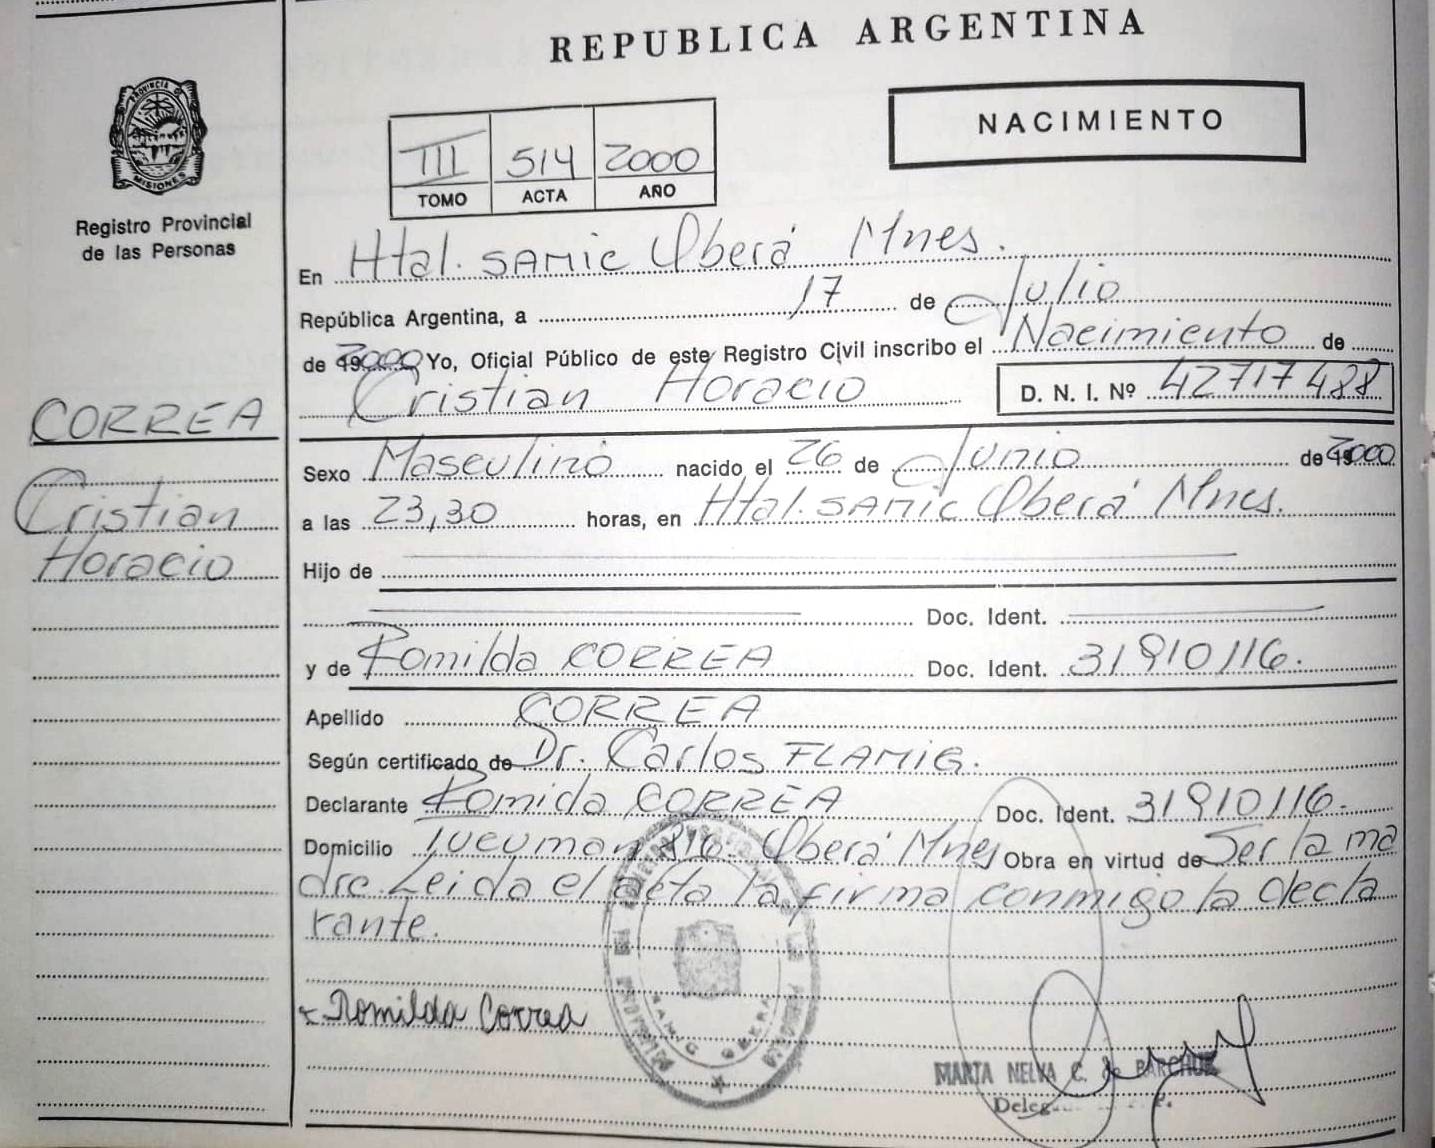 REPUBLICA ARGENTINA
PROVINCIA DE
MISIONES
Registro Provincial
de las Personas
NACIMIENTO
III 514 2000
TOMO ACTA AÑO
En Htal. SAMIC Oberá Mnes.
República Argentina, a 17 de Julio
de 2000 Yo, Oficial Público de este Registro Civil inscribo el Nacimiento de
Cristian Horacio D. N. I. Nº 42717488
CORREA
Cristian
Horacio
Sexo Masculino nacido el 26 de Junio de 2000
a las 23,30 horas, en Htal. SAMIC Oberá Mnes.
Hijo de
Doc. Ident.
y de Romilda CORREA Doc. Ident. 31910116.
Apellido CORREA
Según certificado de Dr. Carlos FLAMIG.
Declarante Romida CORREA Doc. Ident. 31910116.
Domicilio Tucuman 816. Oberá Mnes Obra en virtud de Ser la ma
dre. Leida el acta la firma conmigo la decla
rante.
x Romilda Correa
SAMIC OBERA
MARTA NELVA C. de